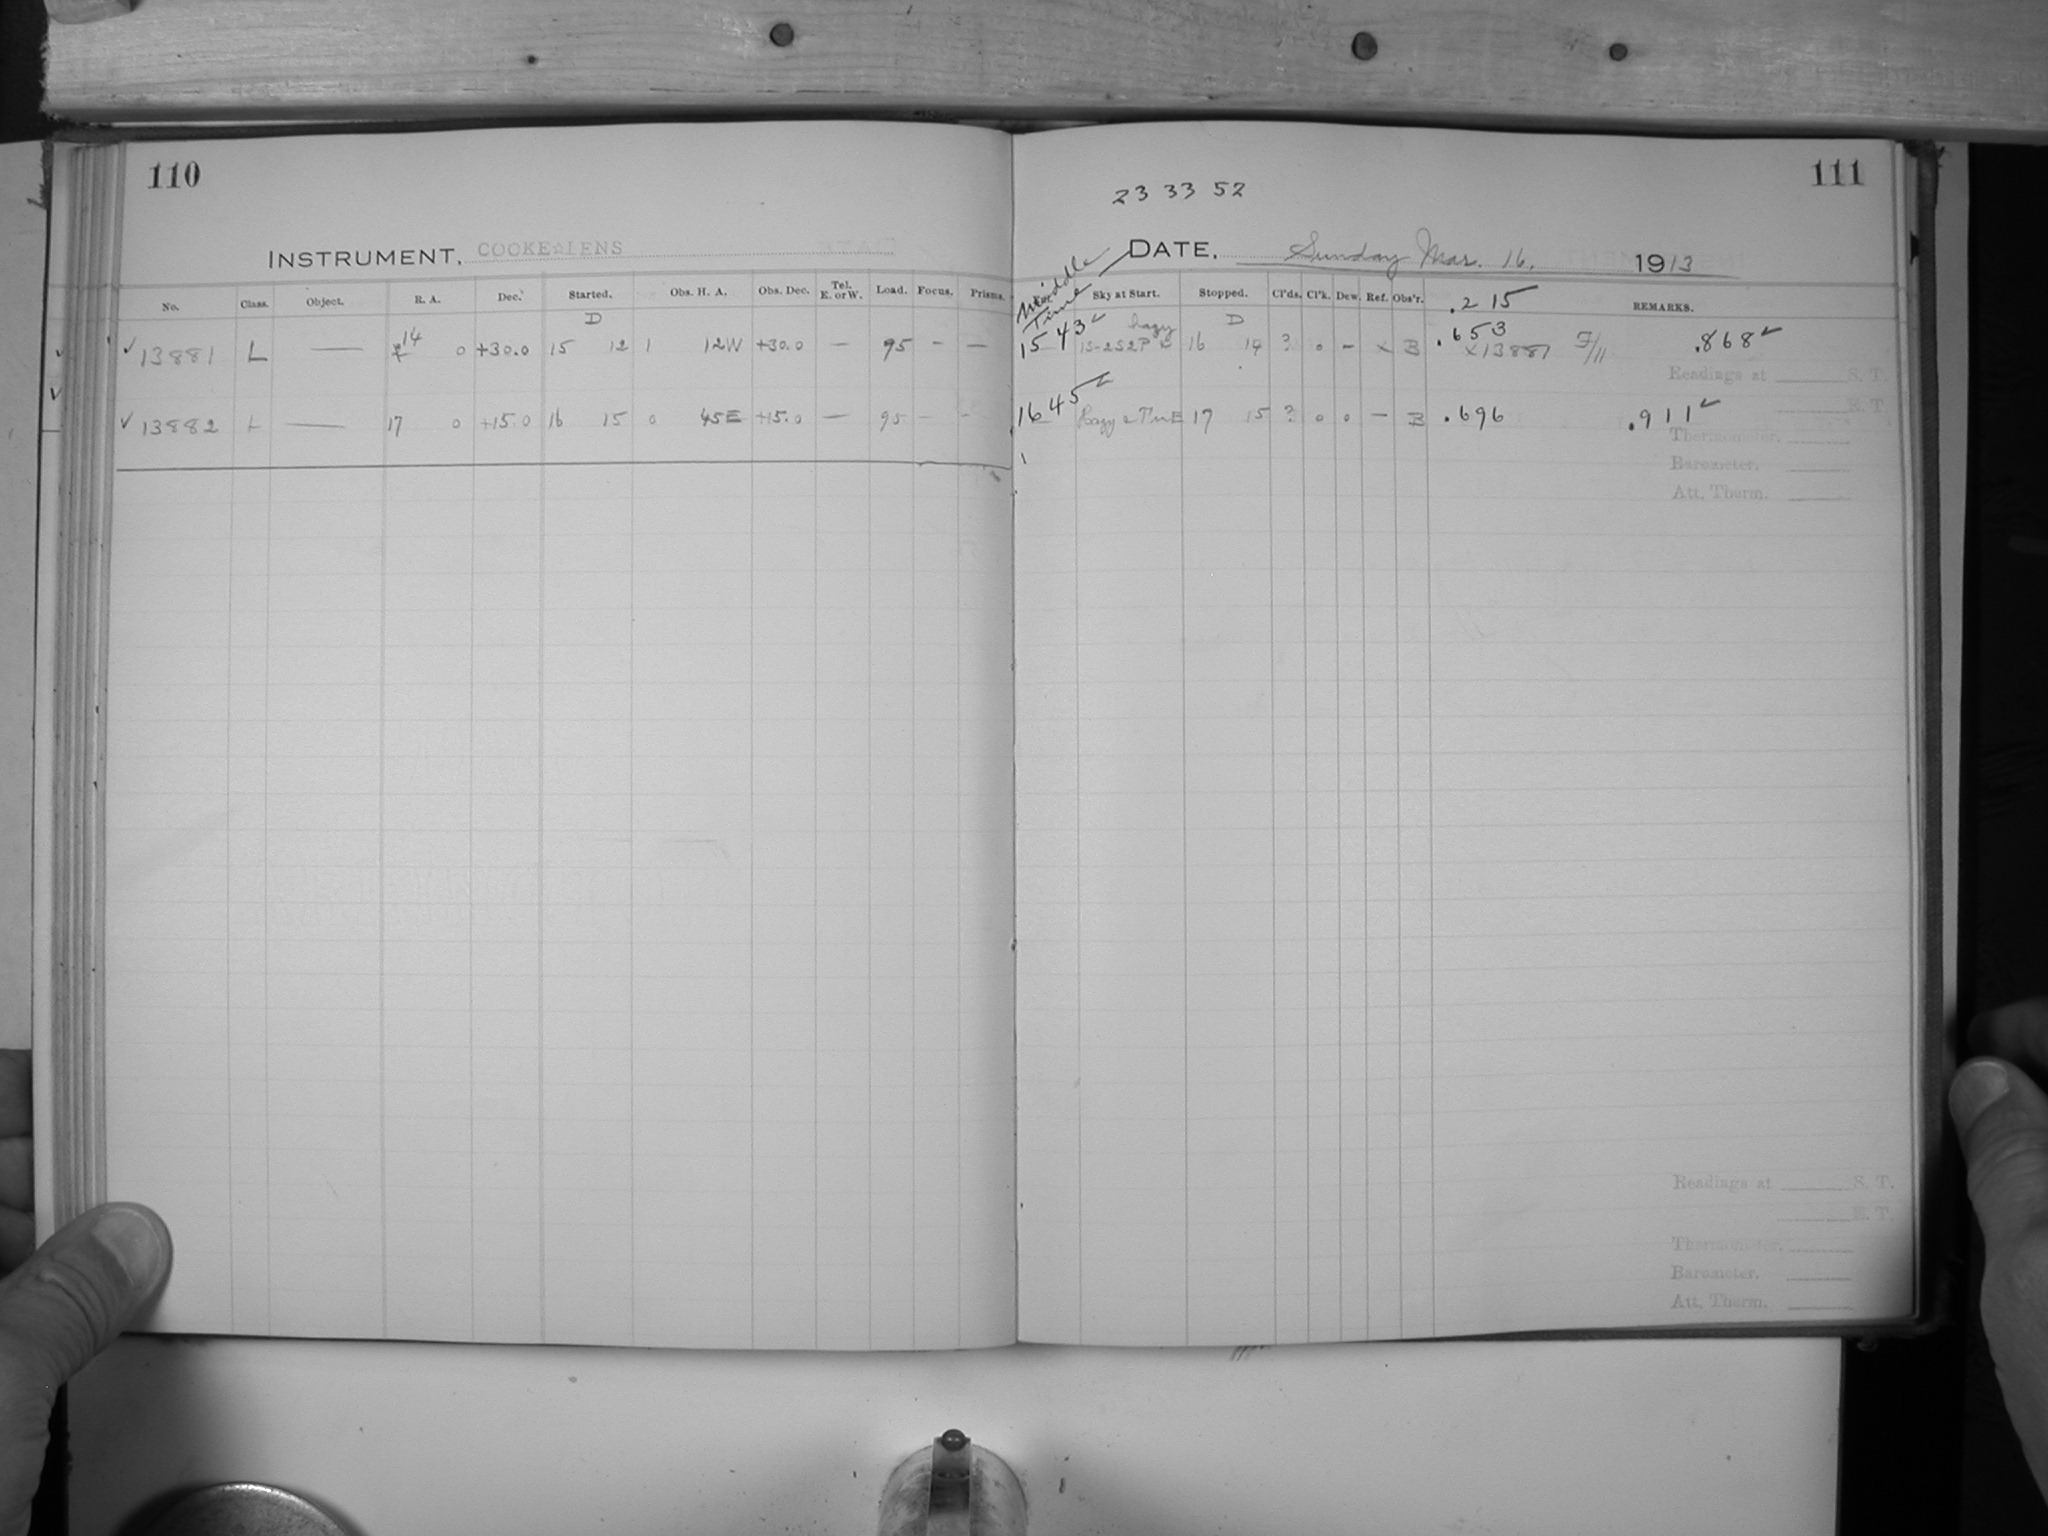 110
INSTRUMENT. COOKE☆LENS
No. Class. Object. R. A. Dec. Started. Obs. H. A. Obs. Dec. Tel. E. or W. Load. Focus. Prisms.
D
✓ 13881 L — 14 0 +30.0 15 12 1 12W +30.0 — 95 — —
✓ 13882 L — 17 0 +15.0 16 15 0 45E +15.0 — 95 — -
111
23 33 52
DATE. Sunday Mar. 16. 1913
Middle Time Sky at Start. Stopped. Cl'ds. Cl'k. Dew. Ref. Obs'r. .215 REMARKS.
D
15 43 ✓ hazy 16 14 ? 0 – x B .653 x13881 F/11 .868 ✓
Readings at S. T.
16 45 ✓ Hazy 17 15 ? 0 0 – B .696 .911 ✓
E. T.
Thermometer.
Barometer.
Att. Therm.
Readings at S. T.
E. T.
Thermometer.
Barometer.
Att. Therm.